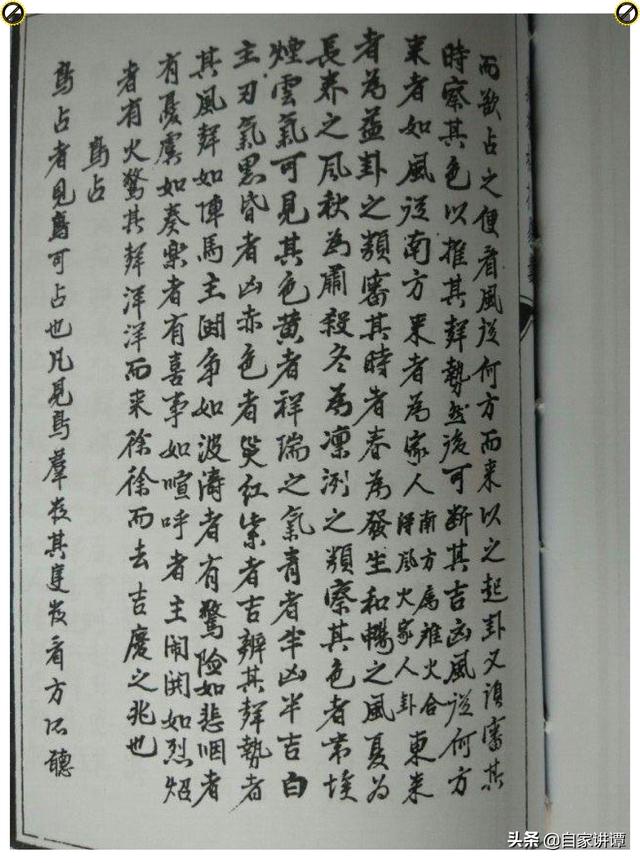 而欲占之便看風從何方而来以之起卦又須審其
時察其色以推其聲勢然後可断其吉凶風從何方
来者如風從南方来者為家人南方属離火合得風火家人卦東来
者為益卦之類審其時者春為發生和暢之風夏為
長养之風秋為肅殺冬為凜冽之類察其色者帯埃
煙雲氣可見其色黄者祥瑞之氣青者半凶半吉白
主刃氣黒昏者凶赤色者災紅紫者吉辨其聲勢者
其風聲如陣馬主閗争如波濤者有驚險如悲咽者
有憂虞如奏樂者有喜事如喧呼者主闹閧如烈焰
者有火驚其聲洋洋而来徐徐而去吉慶之兆也
鸟占
鸟占者見鸟可占也凡見鸟羣数其隻数看方所聽
头条@自家讲谭